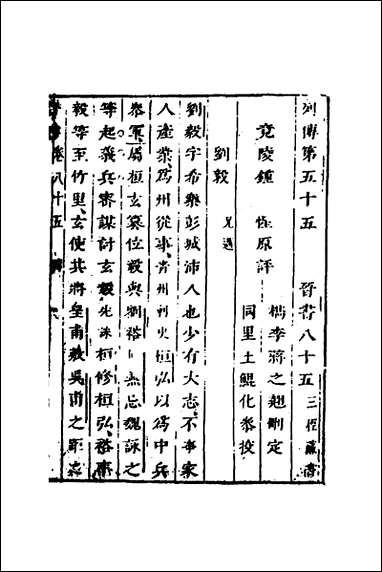 列傳第五十五　晉書八十五
竟陵鍾惺原評　檇李蔣之翹刪定
同里土鯤化參校
劉毅　兄邁
劉毅字希樂彭城沛人也少有大志不事家
人產業爲州從事青州刺史桓弘以爲中兵
參軍屬桓玄篡位毅與劉裕何無忌魏詠之
等起義兵密謀討玄毅先誅桓修桓弘裕率
毅等至竹里玄使其將皇甫敷吳甫之距義
卷八十五